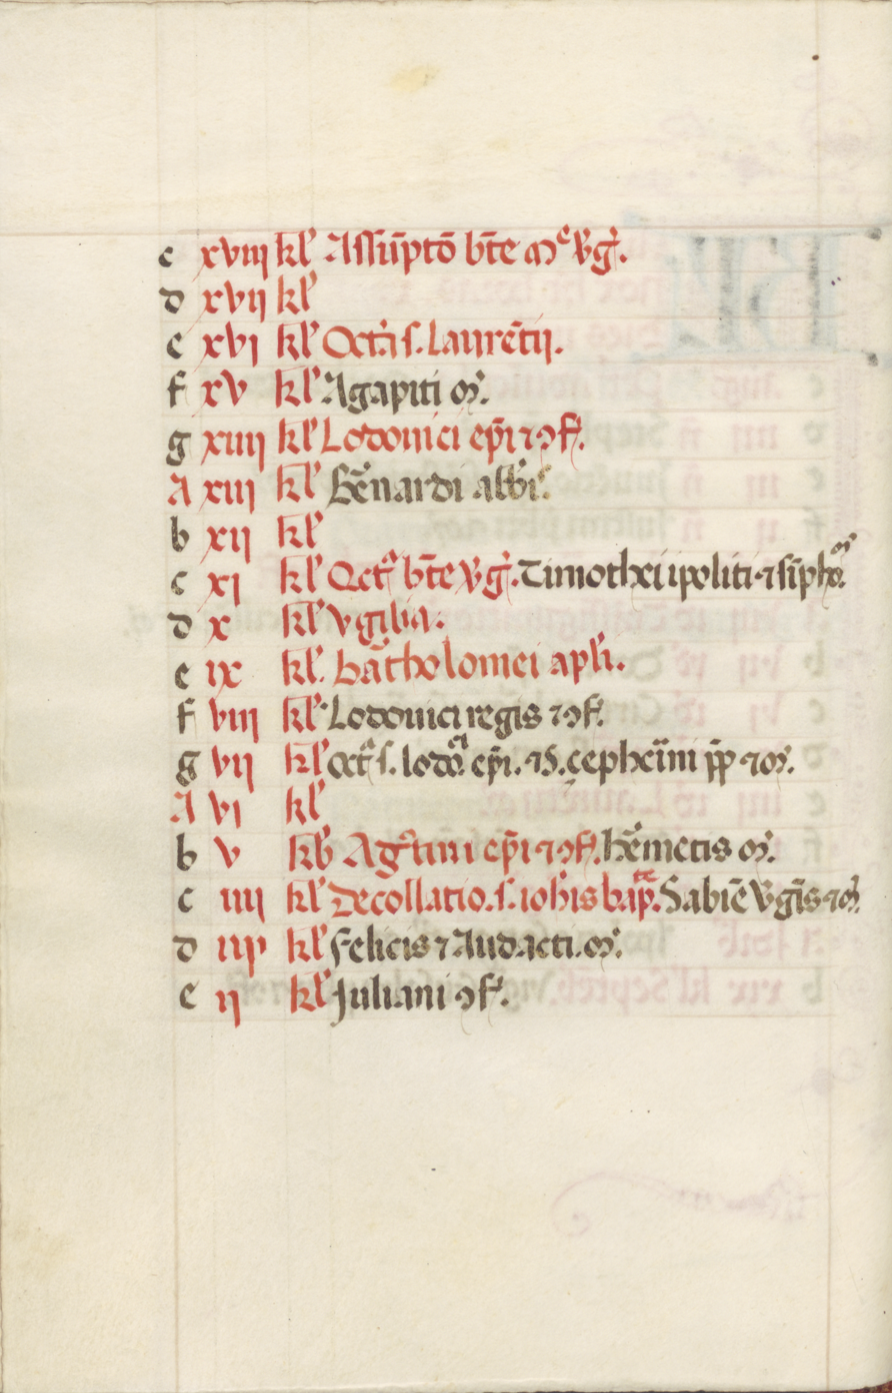 c xviij kl' Assūptō bt̄e mᵉ v̾gı̇.
d xvij kl'
e xvj kl' Octȧ s. laurēcij.
f xv kl' Agapiti m̾.
g xiiij kl' Lodouici ep̄i ⁊ ↄf.
A xiij kl' B̾nardi abb̄is.
b xij kl'
c xj kl' Oct̾ bt̄e v̾gı̇. Timothei ipoliti ⁊ sīpho
d x kl' vigilia.
e ix kl'. bārtholomei apl̄i.
f viij kl' Lodouici regis ⁊ ↄf.
g vij kl' oct̾ s. lodoᵃ. ep̄i. ⁊ s. çepheīni pp̄ ⁊ m̾.
A vj kl'
b v kl' Ag᷒tini ep̄i ⁊ ↄf. h̾metis m̾.
c iiij kl' Decollatio. s. ioh̄is bap̄. Sabiē v̾gı̄s ⁊ m̾
d iij kl' felicis ⁊ Audacti. m̾.
e ij kl' Juliani ↄf.